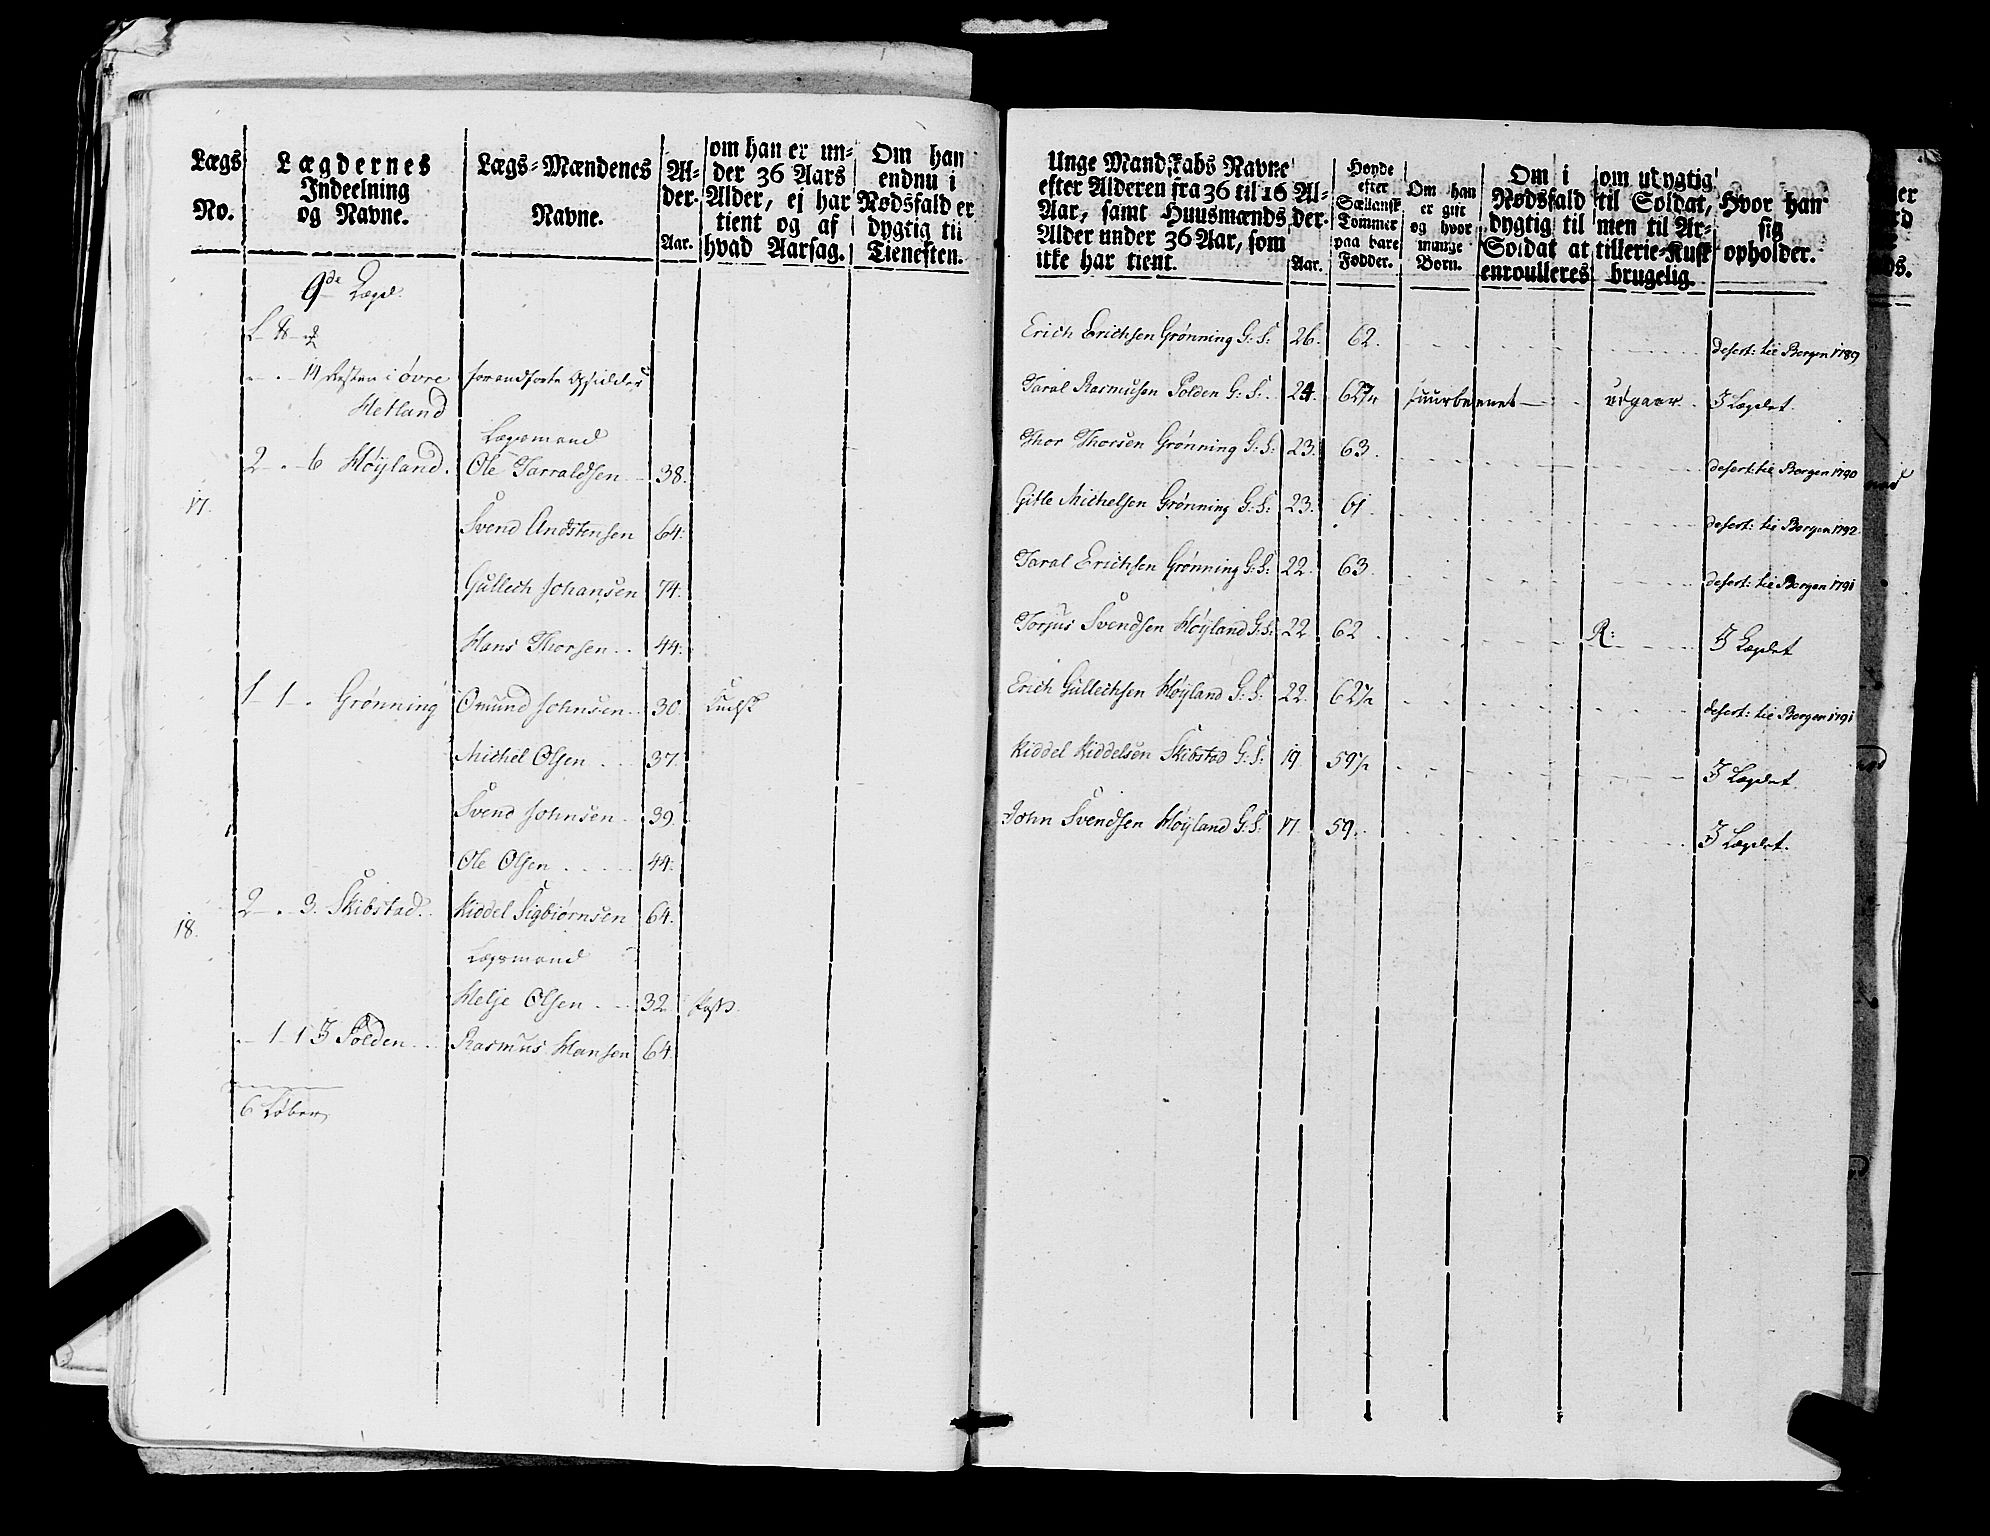 Lægs No.
Lægdernes Indeelning og Navne.
Lægs-Mændenes Navne.
Al-der. Aar.
om han er un-
der 36 Aars
Alder, ej har
tient og af
hvad Aarsag.
Om han
endnu i
Nødsfald er
dygtig til
Tienesten.
9de Lægd.
14 Resten i øvre
Hetland
Lægsmand
2 - . - 6 Høyland. Ole Tarraldsen 38.
17.
Svend Andstensen 64.
Gullech Johansen 74.
Hans Thorsen 44.
1 - 1 - . Grønning Omund Johnsen 30. Kudsk
Michel Olsen 37.
Svend Johnsen 39.
Ole Olsen 44.
2 - . - 3. Skibstad Kiddel Sigbiørnsen 64.
18.
Lægsmand
Helje Olsen 32
. - 1 - 1 3/5 Polden Rasmus Hansen 64.
6 Løber
Unge Mandskabs Navne
efter Alderen fra 36 til 16
Aar, samt Huusmænds
Alder under 36 Aar, som
ikke har tient.
Al-
der.
Aar.
Høyde
efter
Siællansk
Tommer
paa bare
Fødder.
Om han
er gift
og hvor
mange
Børn.
Om i
Nødsfald
dygtig til
Soldat at
enroulleres
om udygtig
til Soldat,
men til Ar-
tillerie-Kusk
brugelig.
Hvor han
sig
opholder.
Erich Erichsen Grønning G: S: 26. 62. desert: til Bergen 1789
Taral Rasmusen Polden G: S: 24. 62½ udgaar I Lægdet.
Thor Thorsen Grønning G: S: 23. 63. desert: til Bergen 1790
Gitle Michelsen Grønning G: S: 23. 61 desert: til Bergen 1792
Taral Erichsen Grønning G: S: 22. 63. desert: til Bergen 1791
Torjus Svendsen Høyland G: S: 22 62 R: I Lægdet
Erich Gullechsen Høyland G: S: 22. 62½ desert: til Bergen 1791
Kiddel Kiddelsen Skibstad G: S: 19. 59½ I Lægdet.
John Svendsen Høyland G: S: 17. 59. I Lægdet.